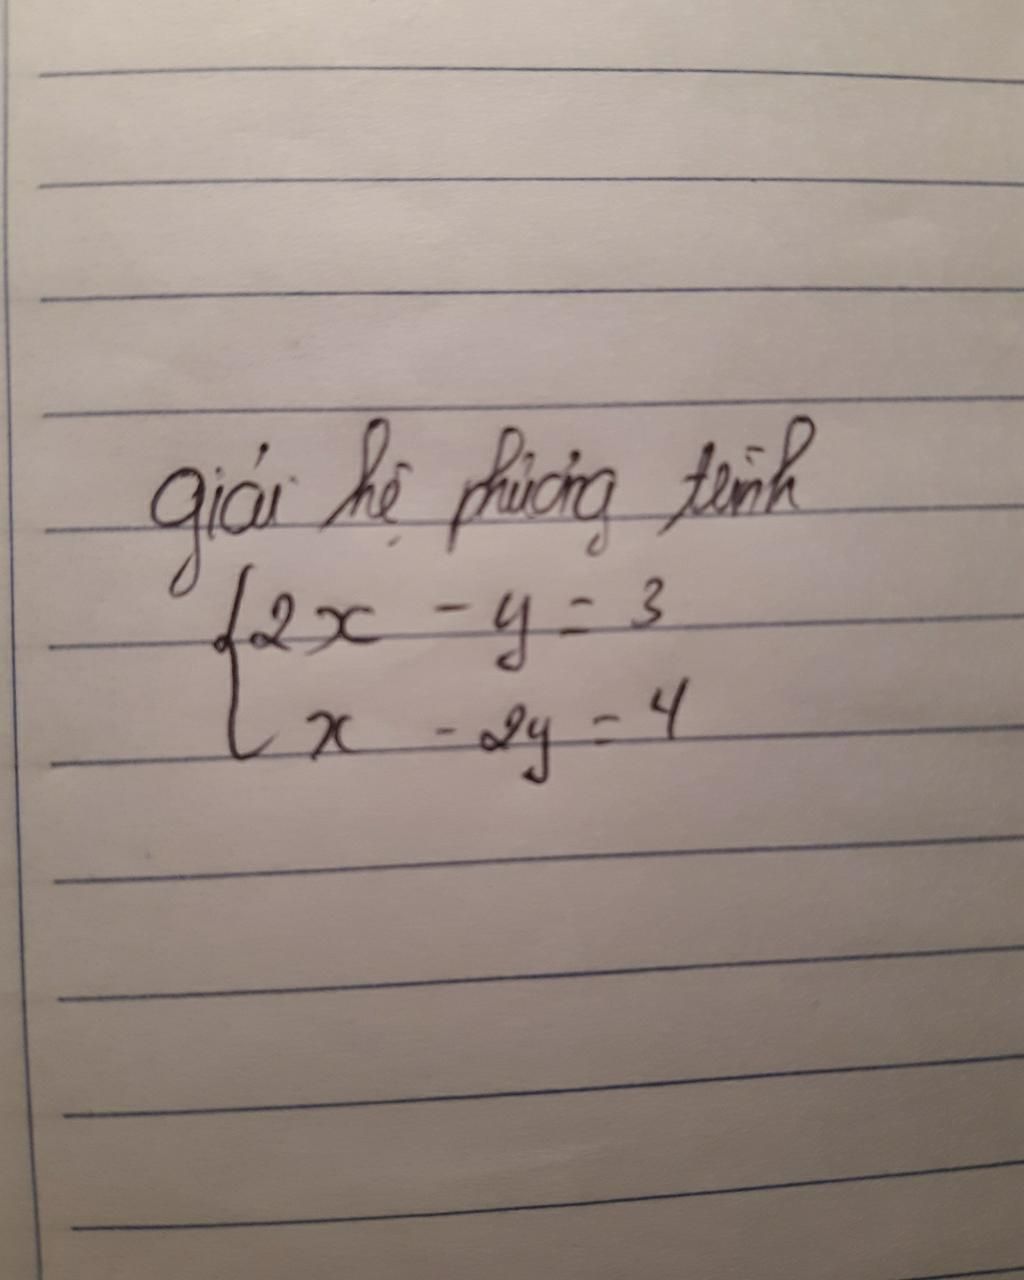 giải hệ phương trình
{2x - y = 3
x - 2y = 4